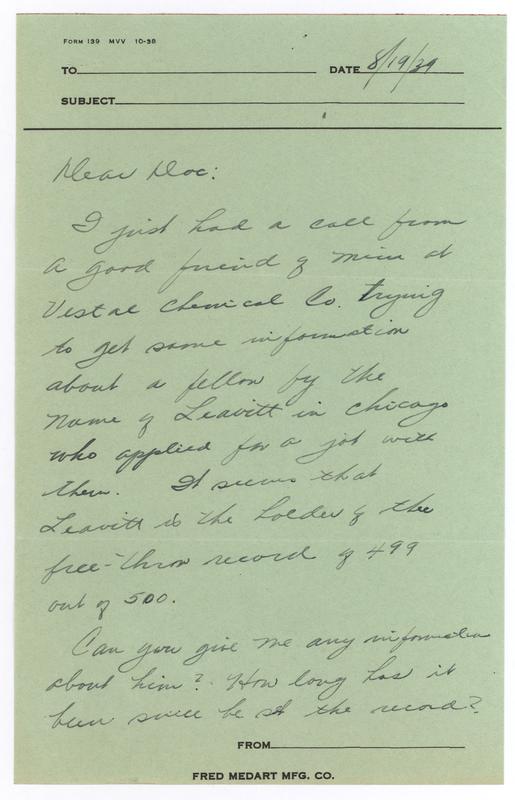 FORM 139 MVV 10-38
TO
DATE 8/19/39
SUBJECT
Dear Doc:
I just had a call from
a good friend of mine at
Vestal Chemical Co. trying
to get some information
about a fellow by the
name of Leavitt in Chicago
who applied for a job with
them. It seems that
Leavitt is the holder of the
free-throw record of 499
out of 500.
Can you give me any information
about him? How long has it
been since he set the record?
FROM
FRED MEDART MFG. CO.